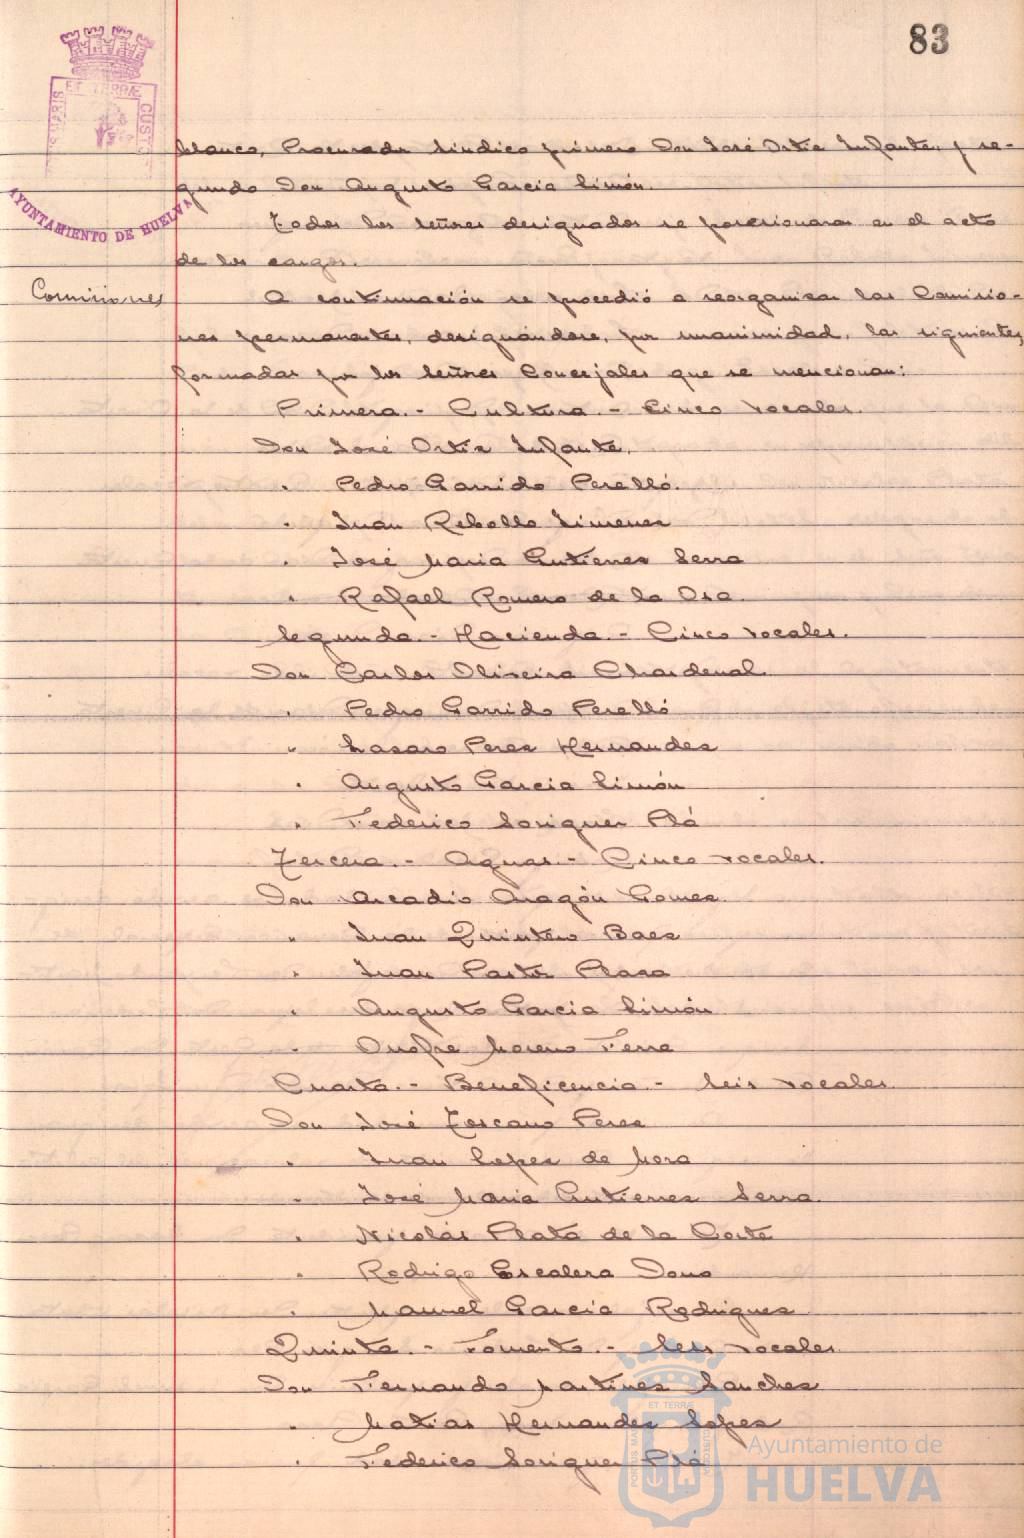 83
ET TERRÆ
CUSTO
AYUNTAMIENTO DE HUELVA
blanco, Procurador Síndico primero Don José Ortiz Infante, y se-
gundo Don Augusto Garcia Simón.
Todos los señores designados se posesionaron en el acto
de los cargos.
Comisiones
A continuación se procedió a reorganizar las Comisio-
nes permanentes, designándose, por unanimidad, las siguientes,
formadas por los señores Concejales que se mencionan:
Primera.- Cultura.- Cinco vocales.
Don José Ortiz Infante.
" Pedro Garrido Perelló.
" Juan Rebollo Jimenez
" José Maria Gutierrez Serra
" Rafael Romero de la Osa.
Segunda.- Hacienda.- Cinco vocales.
Don Carlos Oliveira Chardenal.
" Pedro Garrido Perelló
" Lazaro Perez Hernandez
" Augusto Garcia Simón
" Federico Soriguer Plá
Tercera.- Aguas.- Cinco vocales.
Don Arcadio Aragón Gomez.
" Juan Quintero Baez
" Juan Pastor Plaza
" Augusto Garcia Simón
" Onofre Moreno Ferre
Cuarta.- Beneficencia.- Seis vocales.
Don José Toscano Perez
" Juan Lopez de Mora
" José Maria Gutierrez Serra.
" Nicolás Plata de la Corte
" Rodrigo Escalera Dono
" Manuel Garcia Rodriguez
Quinta.- Fomento.- Seis vocales.
Don Fernando Martinez Sanchez
" Matias Hernandez Lopez
" Federico Soriguer Plá
ET TERRÆ
Ayuntamiento de
HUELVA